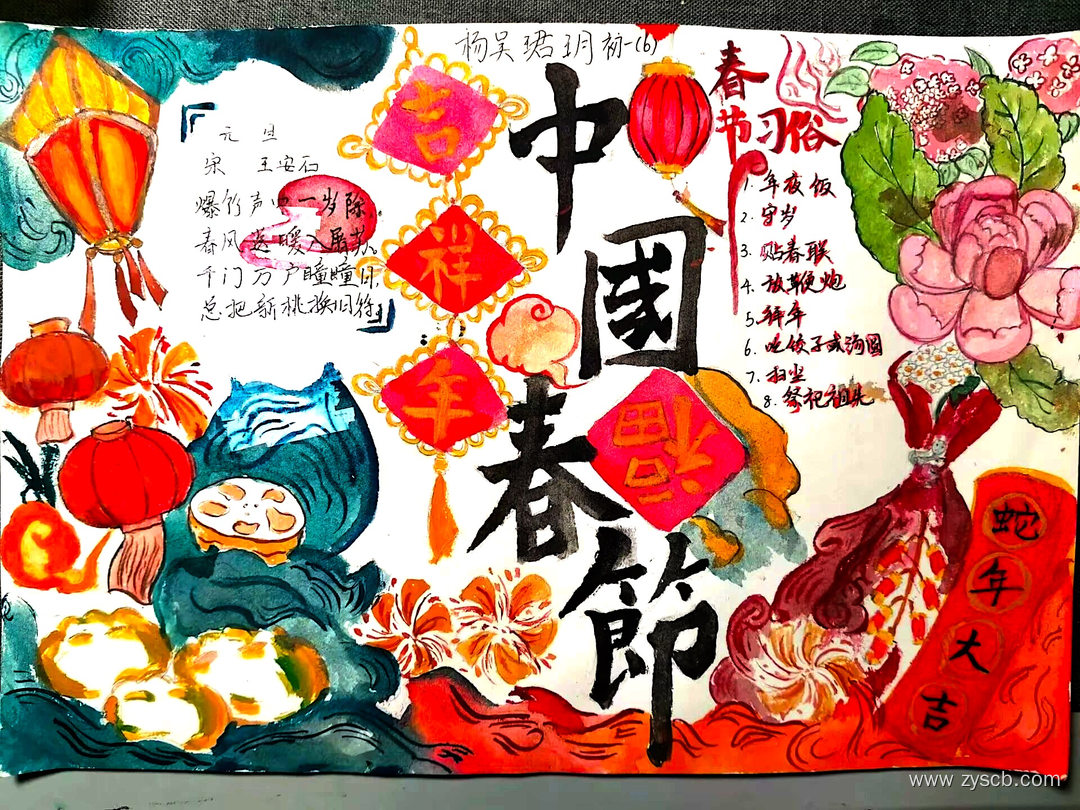 杨吴珺玥初一(6)
元旦
宋 王安石
爆竹声中一岁除,
春风送暖入屠苏
千门万户曈曈日,
总把新桃换旧符
吉
祥
年
中國春節
福
春节习俗
1. 年夜饭
2. 守岁
3. 贴春联
4. 放鞭炮
5. 拜年
6. 吃饺子或汤圆
7. 扫尘
8. 祭祀祖先
蛇年大吉
www.zyscb.com